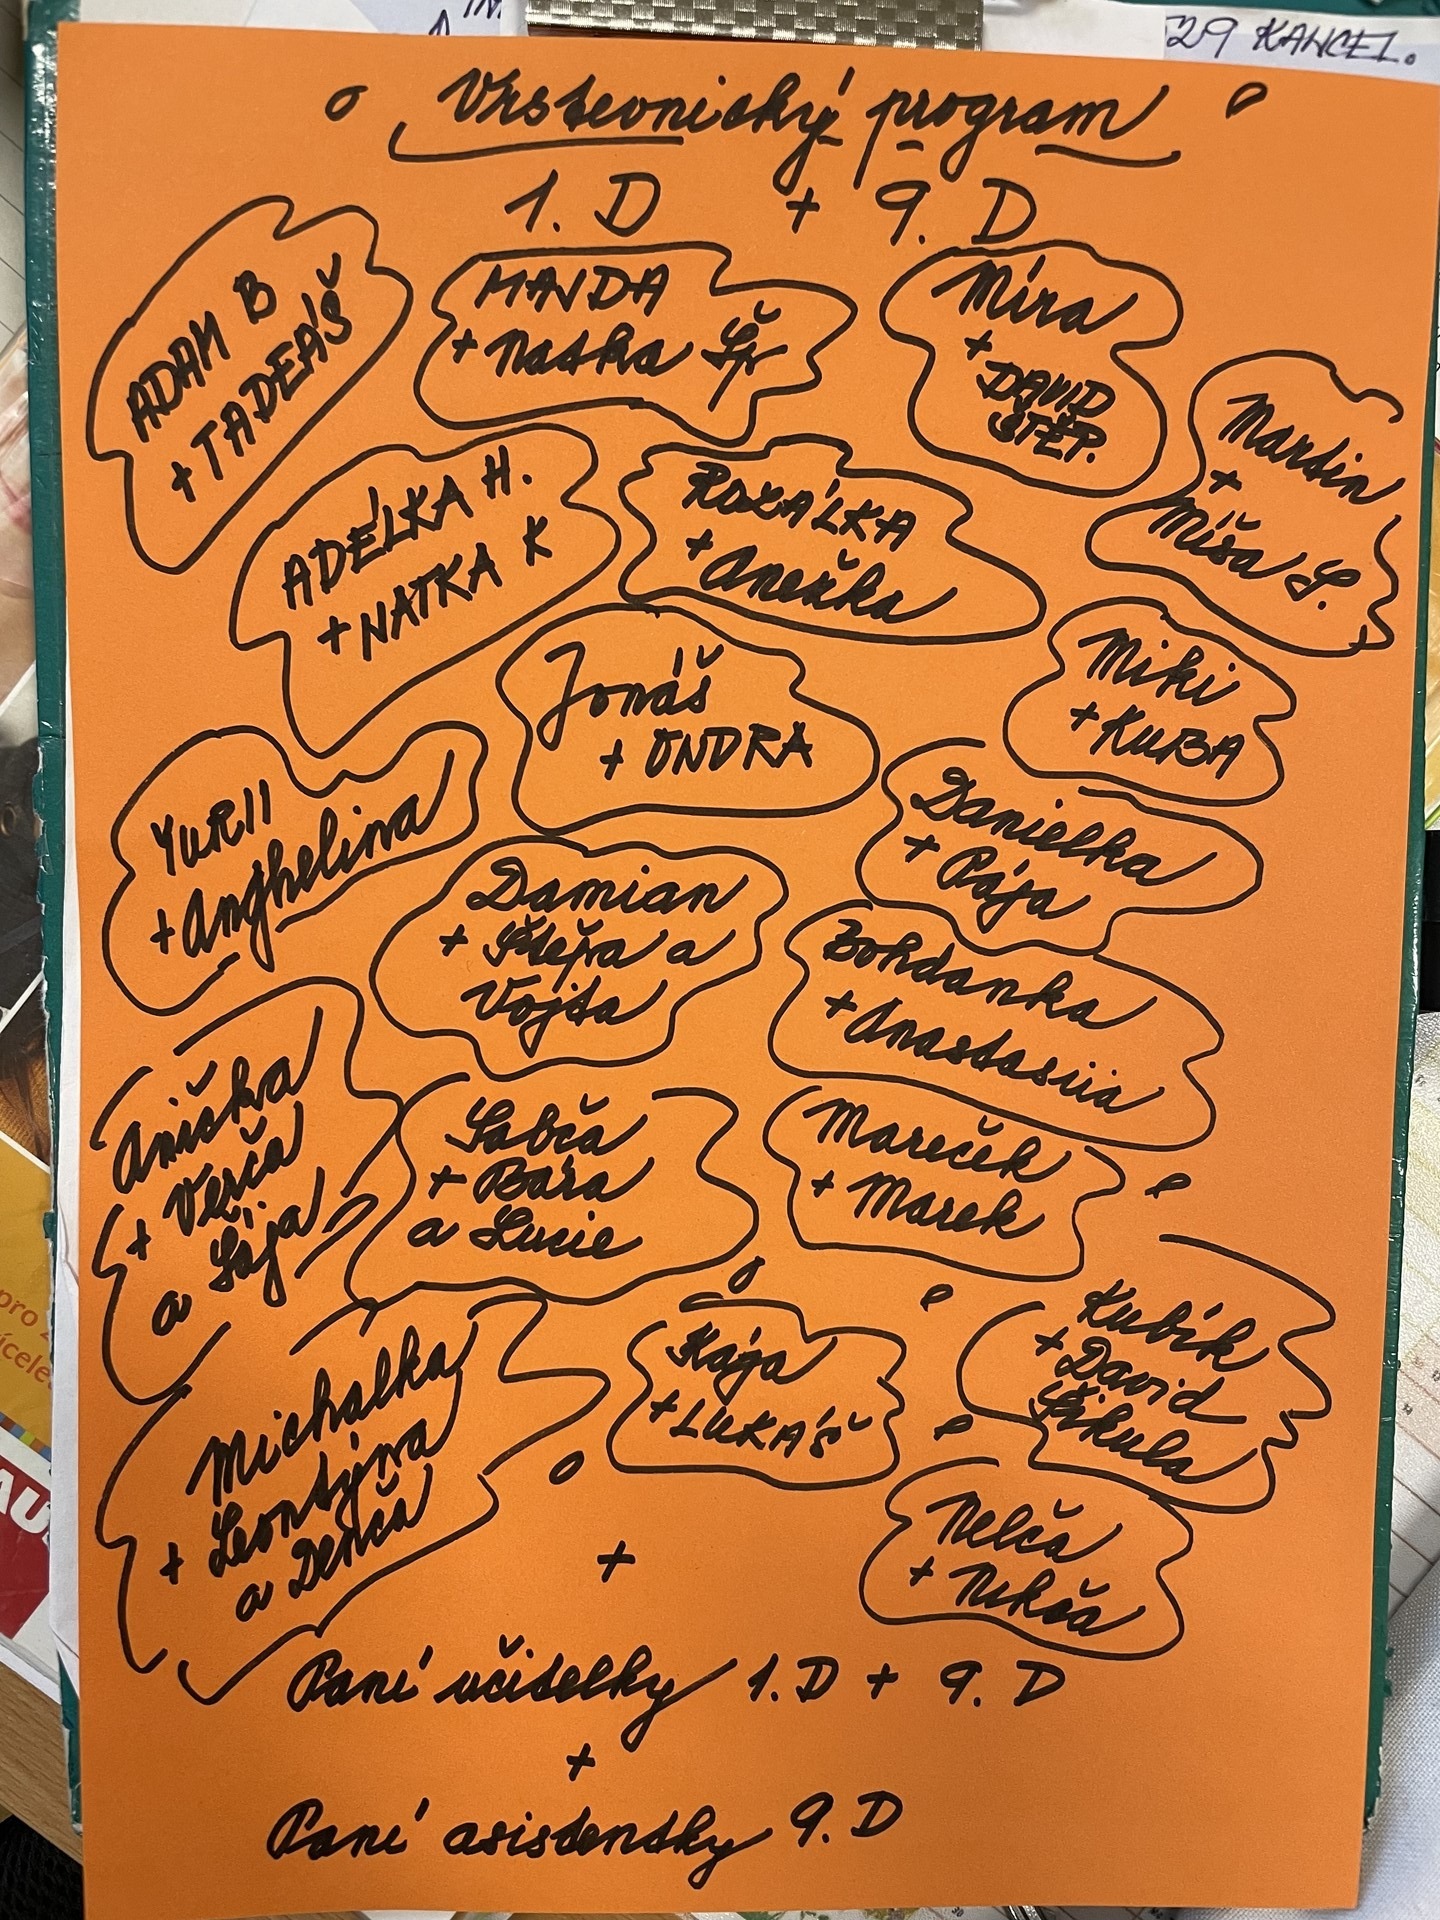 29 KANCEL.
Vrstevnický program
1. D + 9. D
ADAM B
+ TADEÁŠ
MAJDA
+ Natka Šp
Míra
+
DAVID
ŠTĚP.
Martin
+
Míša S.
ADÉLKA H.
+ NATKA K
ROZÁLKA
+ Anežka
Jonáš
+ ONDRA
Miki
+ KUBA
YURII
+ Anghelina
Danielka
+ Pája
Damian
+ Štěpa a
Vojta
Bohdanka
+ Anastasiia
Anička
+ Verča
a Sája
Sabča
+ Bára
a Lucie
Mareček
+ Marek
Michalka
+ Leontýna
a Denča
Kája
+ LUKÁŠ
Kubík
+ David
Šikula
Nelča
+ Nikča
+
Paní učitelky 1. D + 9. D
+
Paní asistentky 9. D
pro